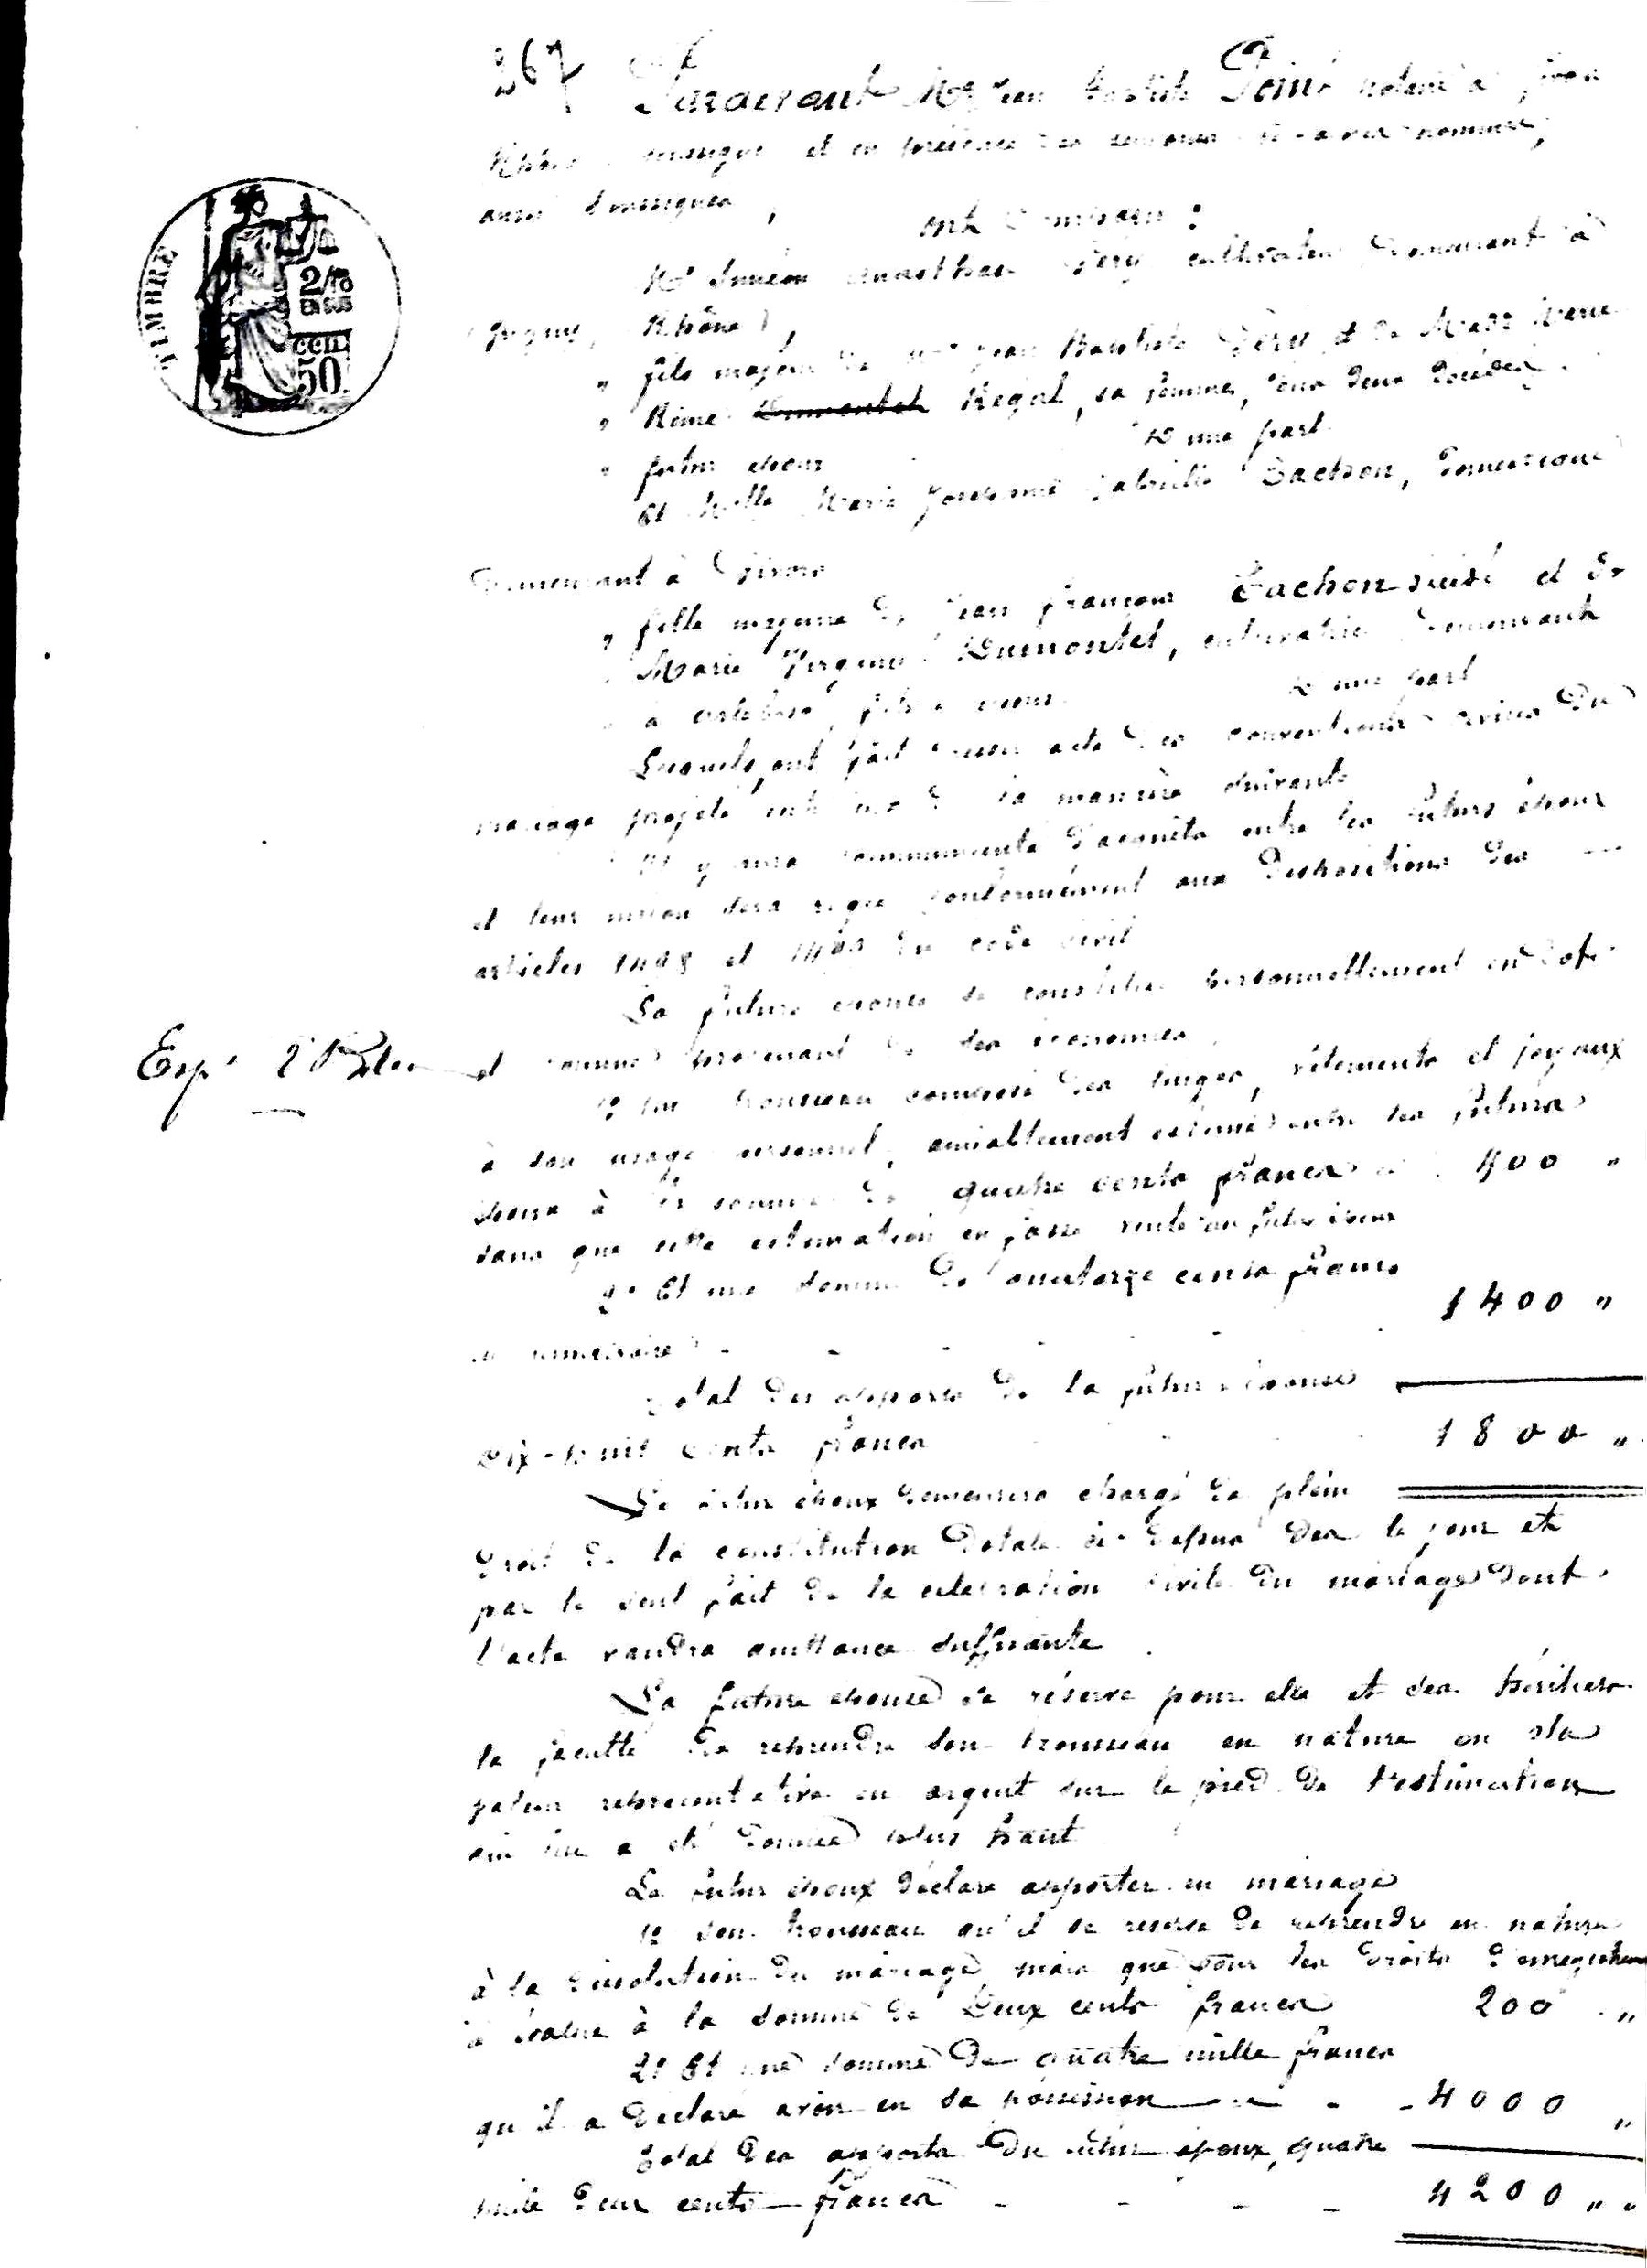 267 Pardevant Me Jean Baptiste notaire à
Rhône soussigné et en présence des témoins ci-après nommés,
aussi soussignés,
ont comparu :
TIMBRE
2/10
EN SUS
cen.
50
Mr Siméon cultivateur demeurant à
Grigny, Rhône),
" fils majeur de Mr Jean Baptiste et de Made Marie
" Reine Dumontet Regal, sa femme, tous deux décédés.
" futur époux D'une part
Et Melle Marie Gabrielle Bachon, domestique
Demeurant à Givors
" fille majeure de Jean François Bachon décédé et de
Marie Virginie Dumontet, cultivatrice demeurant
à future épouse D'une part
Lesquels ont fait dresser acte des conventions civiles du
mariage projeté entre eux de la manière suivante
Il y aura communauté d'acquêts entre les futurs époux
et leur union sera régie conformément aux dispositions des
articles 1498 et 1499 du code civil
La future épouse se constitue personnellement en dot
et comme provenant de ses économies
1º Un trousseau composé des linges, vêtements et joyaux
à son usage personnel, amiablement estimé entre les futurs
époux à la somme de quatre cents francs 400 "
sans que cette estimation en fasse vente au futur époux
2º Et une somme de quatorze cents francs
en numéraire - - - - 1400 "
Total des apports de la future épouse
dix-huit cents francs 1800 "
Le futur époux demeurera chargé de plein
droit de la constitution dotale ci-dessus dès le jour et
par le seul fait de la célébration civile du mariage dont
l'acte vaudra quittance suffisante.
La future épouse se réserve pour elle et ses héritiers
la faculté de reprendre son trousseau en nature ou sa
valeur représentative en argent sur le pied de l'estimation
qui en a été donnée plus haut
Le futur époux déclare apporter en mariage
1º Son trousseau qu'il se réserve de reprendre en nature
à la dissolution du mariage, mais que pour les droits d'enregistrement
il évalue à la somme de Deux cents francs 200 "
2º Et une somme de quatre mille francs
qu'il a déclaré avoir en sa possession - - 4000 "
Total des apports du futur époux, quatre
mille deux cents francs - - - - 4200 "